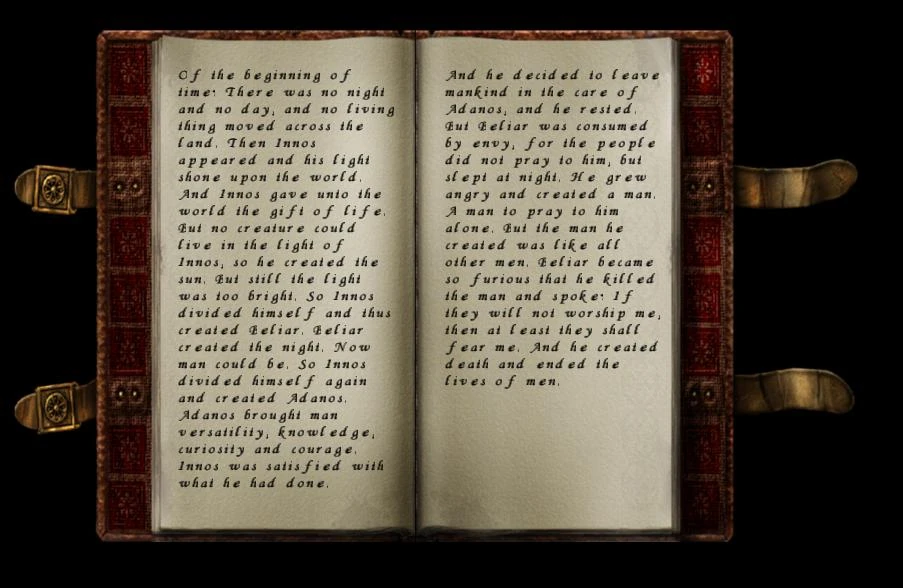 Of the beginning of
time: There was no night
and no day, and no living
thing moved across the
land. Then Innos
appeared and his light
shone upon the world.
And Innos gave unto the
world the gift of life.
But no creature could
live in the light of
Innos, so he created the
sun. But still the light
was too bright. So Innos
divided himself and thus
created Beliar. Beliar
created the night. Now
man could be. So Innos
divided himself again
and created Adanos.
Adanos brought man
versatility, knowledge,
curiosity and courage.
Innos was satisfied with
what he had done.
And he decided to leave
mankind in the care of
Adanos, and he rested.
But Beliar was consumed
by envy, for the people
did not pray to him, but
slept at night. He grew
angry and created a man.
A man to pray to him
alone. But the man he
created was like all
other men. Beliar became
so furious that he killed
the man and spoke: If
they will not worship me,
then at least they shall
fear me. And he created
death and ended the
lives of men.